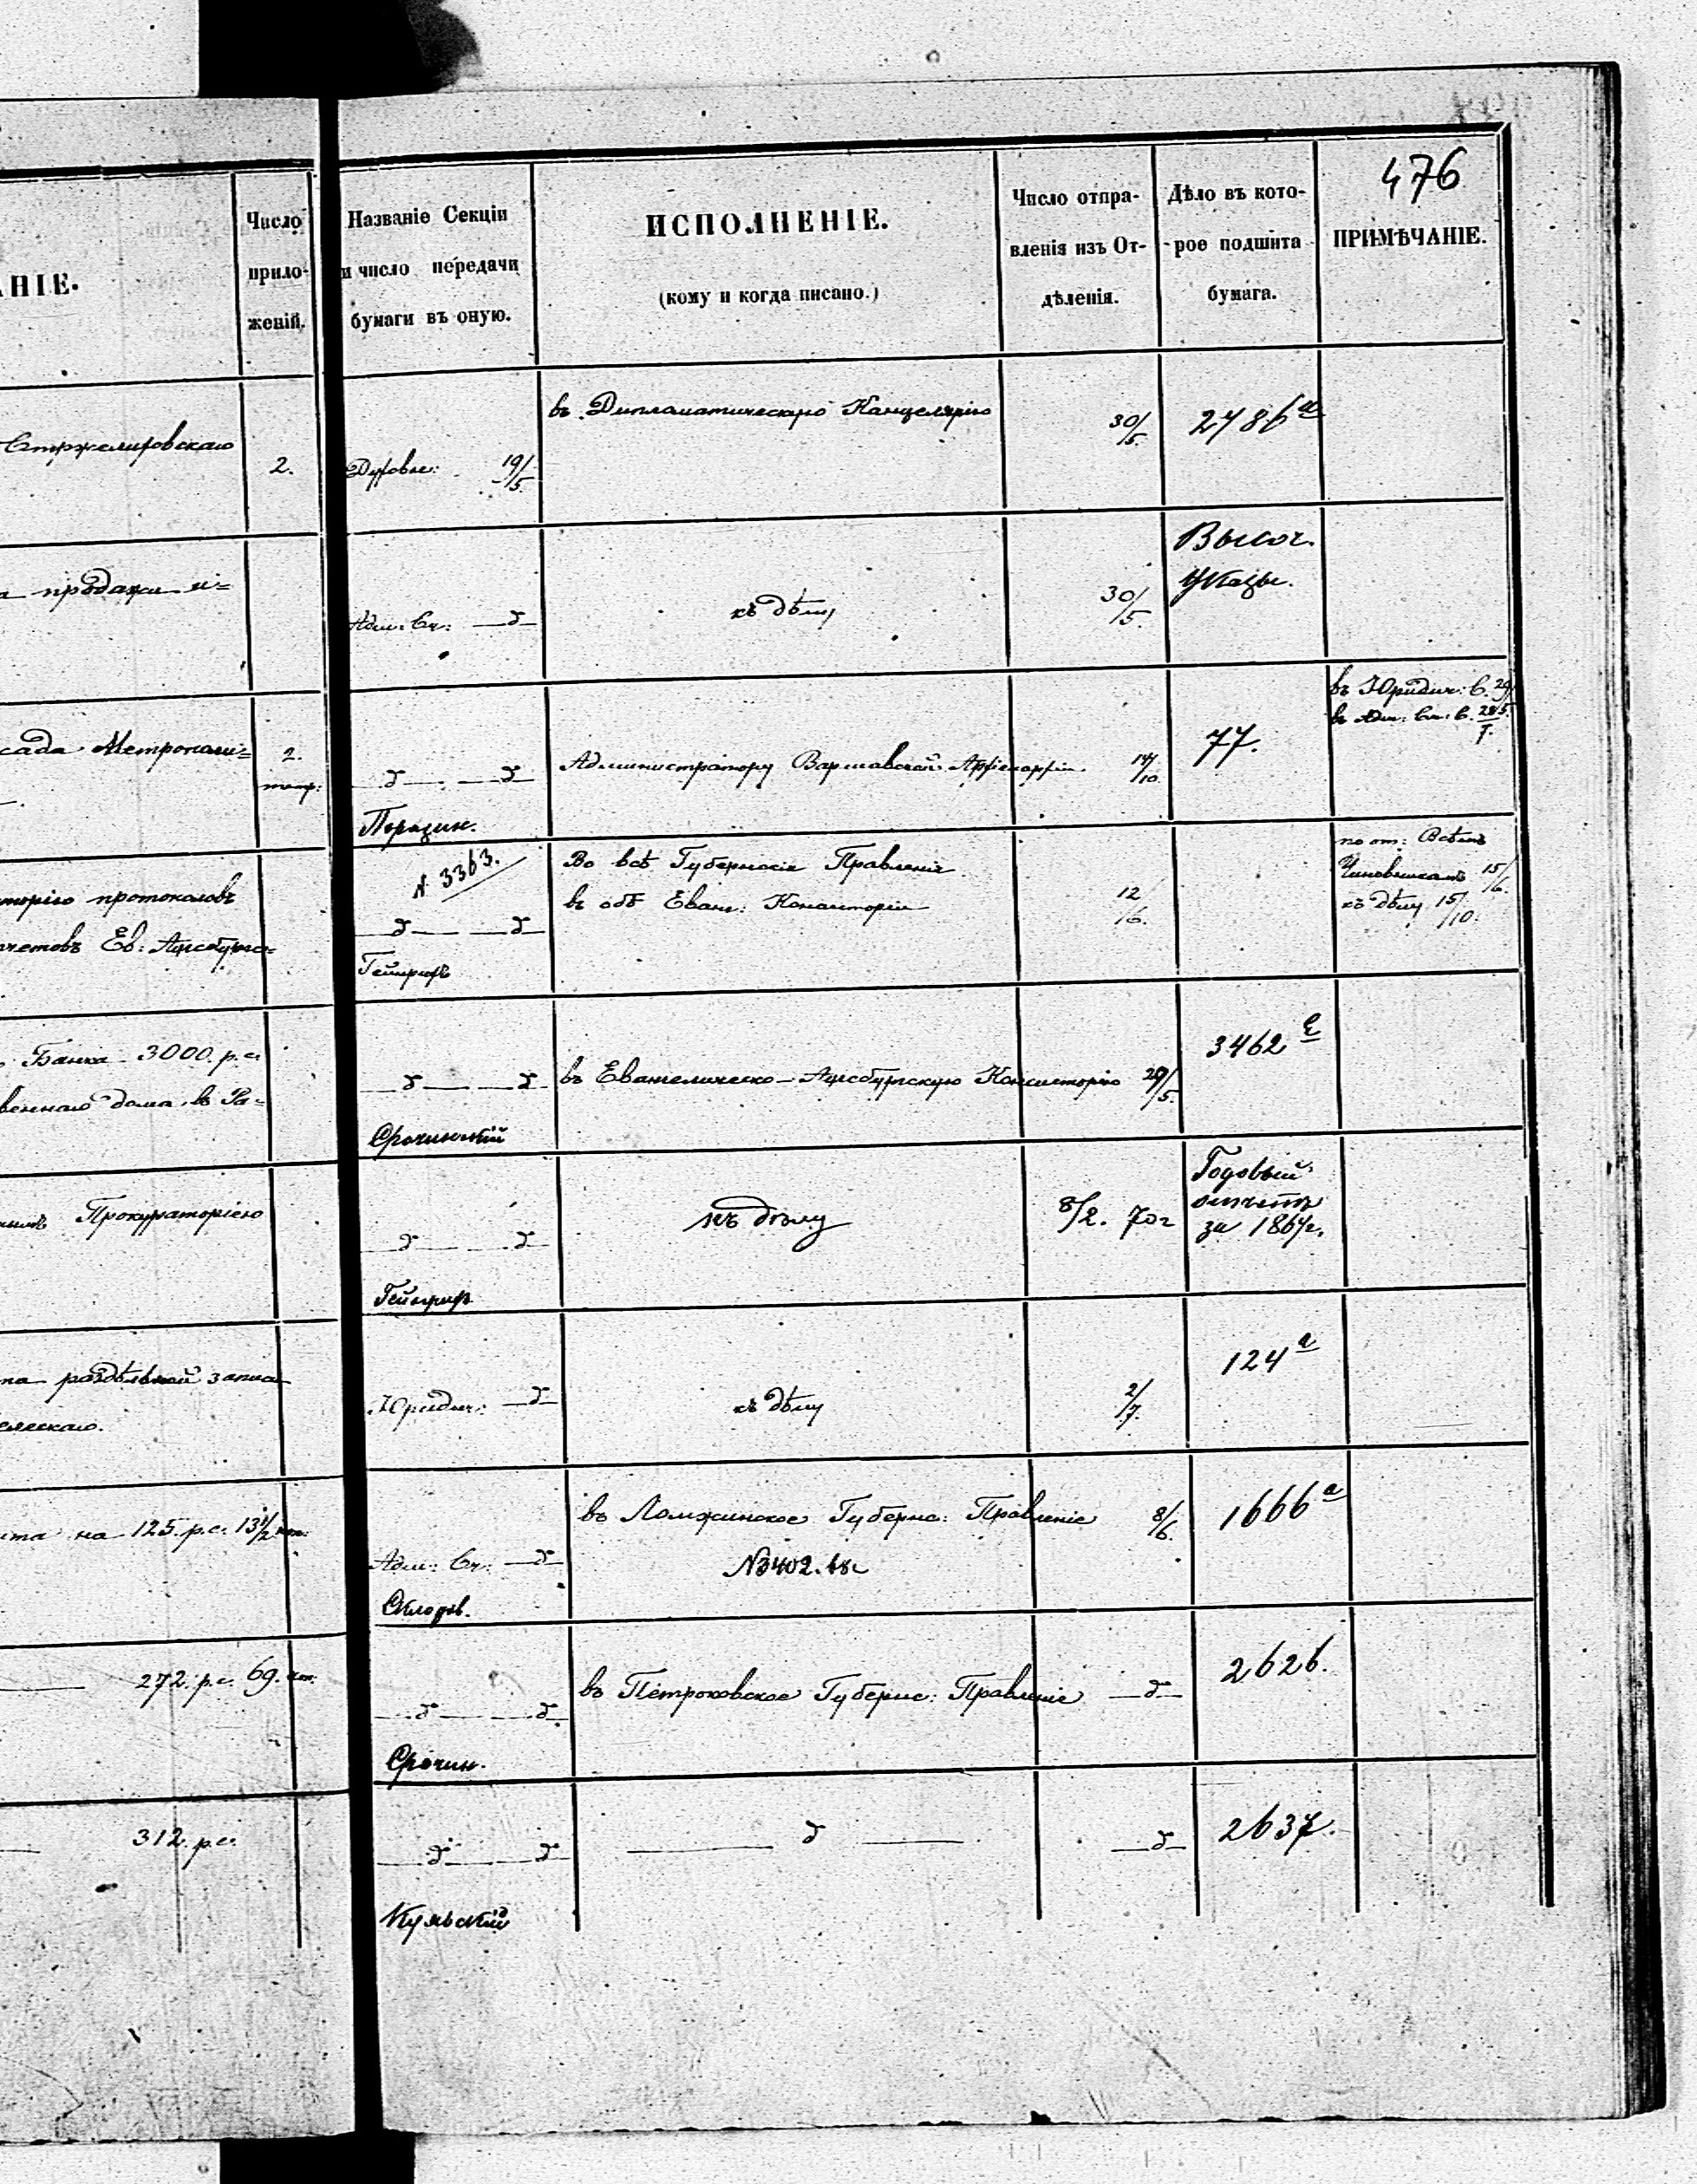 476
АНІЕ.
Число
прило-
женій.
Названіе Секціи
и число передачи
бумаги въ оную.
ИСПОЛНЕНІЕ.
(кому и когда писано.)
Число отпра-
вленія изъ От-
дѣленія.
Дѣло въ кото-
рое подшита
бумага.
ПРИМѢЧАНІЕ.
2.
Духовн: 19/5.
въ Дипломатическую Канцелярію
30/5.
2786 а
продажи и=
Адм: Сч: —д—
къ дѣлу
30/5.
Высоч.
Указы.
сада Метрополи=
2.
тетр:
—д— —д—
Администратору Варшавской Архіепархіи
14/10.
77.
въ Юридич: С. 29/5.
въ Адм: Сч: С. 28/7.
торію протоколовъ
четовъ Ев: Аугсбургс=
№ 3363.
—д— —д—
Во всѣ Губернскія Правленія
въ обѣ Еванг: Консисторіи
12/6.
по от: Всѣмъ
Чиновникамъ 15/6.
къ дѣлу 15/10.
Банка 3000. р.с.
веннаго дома въ Ра=
—д— —д—
въ Евангелическо-Аугсбургскую Консисторію
29/5.
3462
Прокураторіею
—д— —д—
къ дѣлу
8/2. 70г
Годовый
отчетъ
за 1867г.
на раздѣльной записи
Юридич: —д—
къ дѣлу
2/7.
124 а
на 125. р.с. 13½ коп:
Адм: Сч: —д—
въ Ломжинское Губернс: Правленіе
№ 3402. 68г
8/6.
1666 а
272. р.с. 69. коп:
—д— —д—
въ Петроковское Губернс: Правленіе
—д—
2626.
Срочин.
312. р.с.
—д— —д—
— д —
—д—
2637.
Кульскій